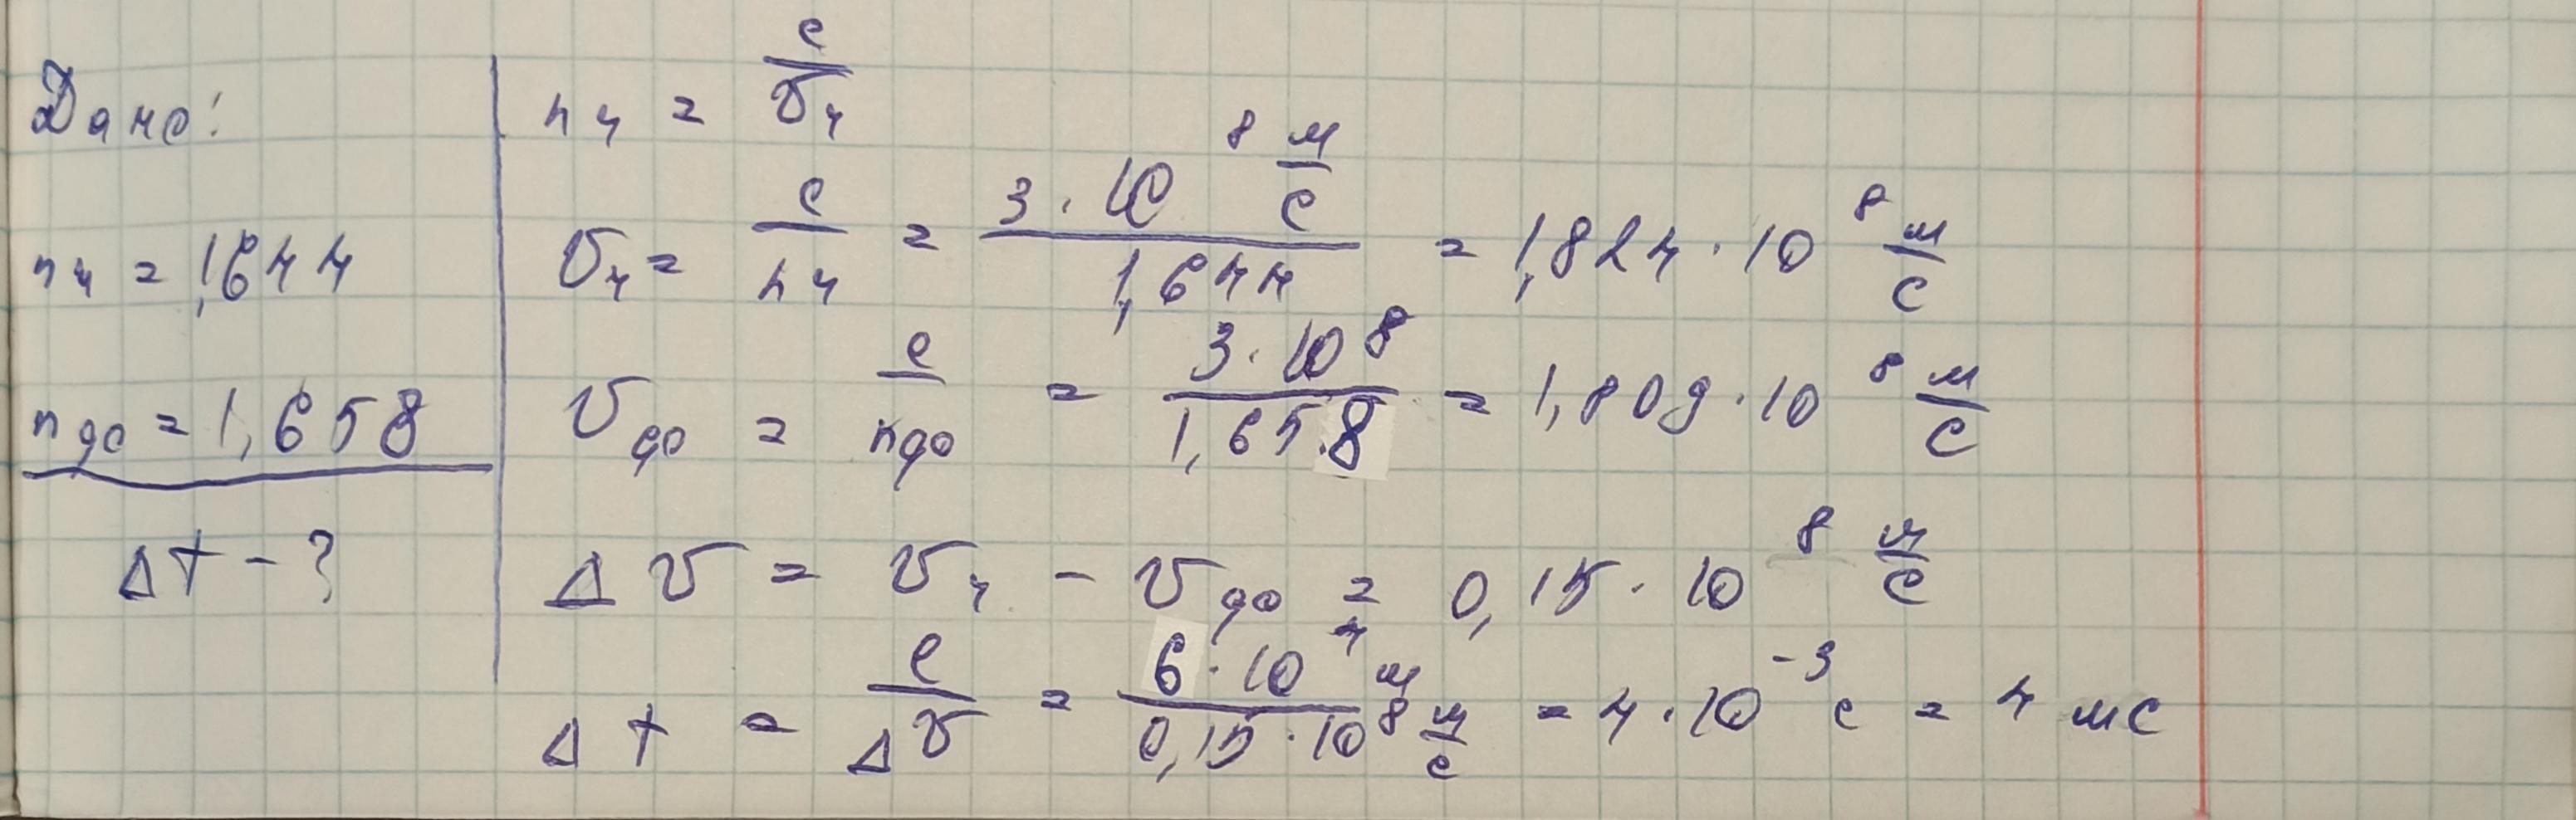 Дано:
n₄ = 1,644
n₉₀ = 1,658
Δt - ?
n₄ = c/υ₄
υ₄ = c/n₄ = (3·10⁸ м/с)/1,644 = 1,824·10⁸ м/с
υ₉₀ = c/n₉₀ = (3·10⁸)/1,658 = 1,809·10⁸ м/с
Δυ = υ₄ - υ₉₀ = 0,15·10⁸ м/с
Δt = ℓ/Δυ = (6·10⁴ м)/(0,15·10⁸ м/с) = 4·10⁻³ с = 4 мс